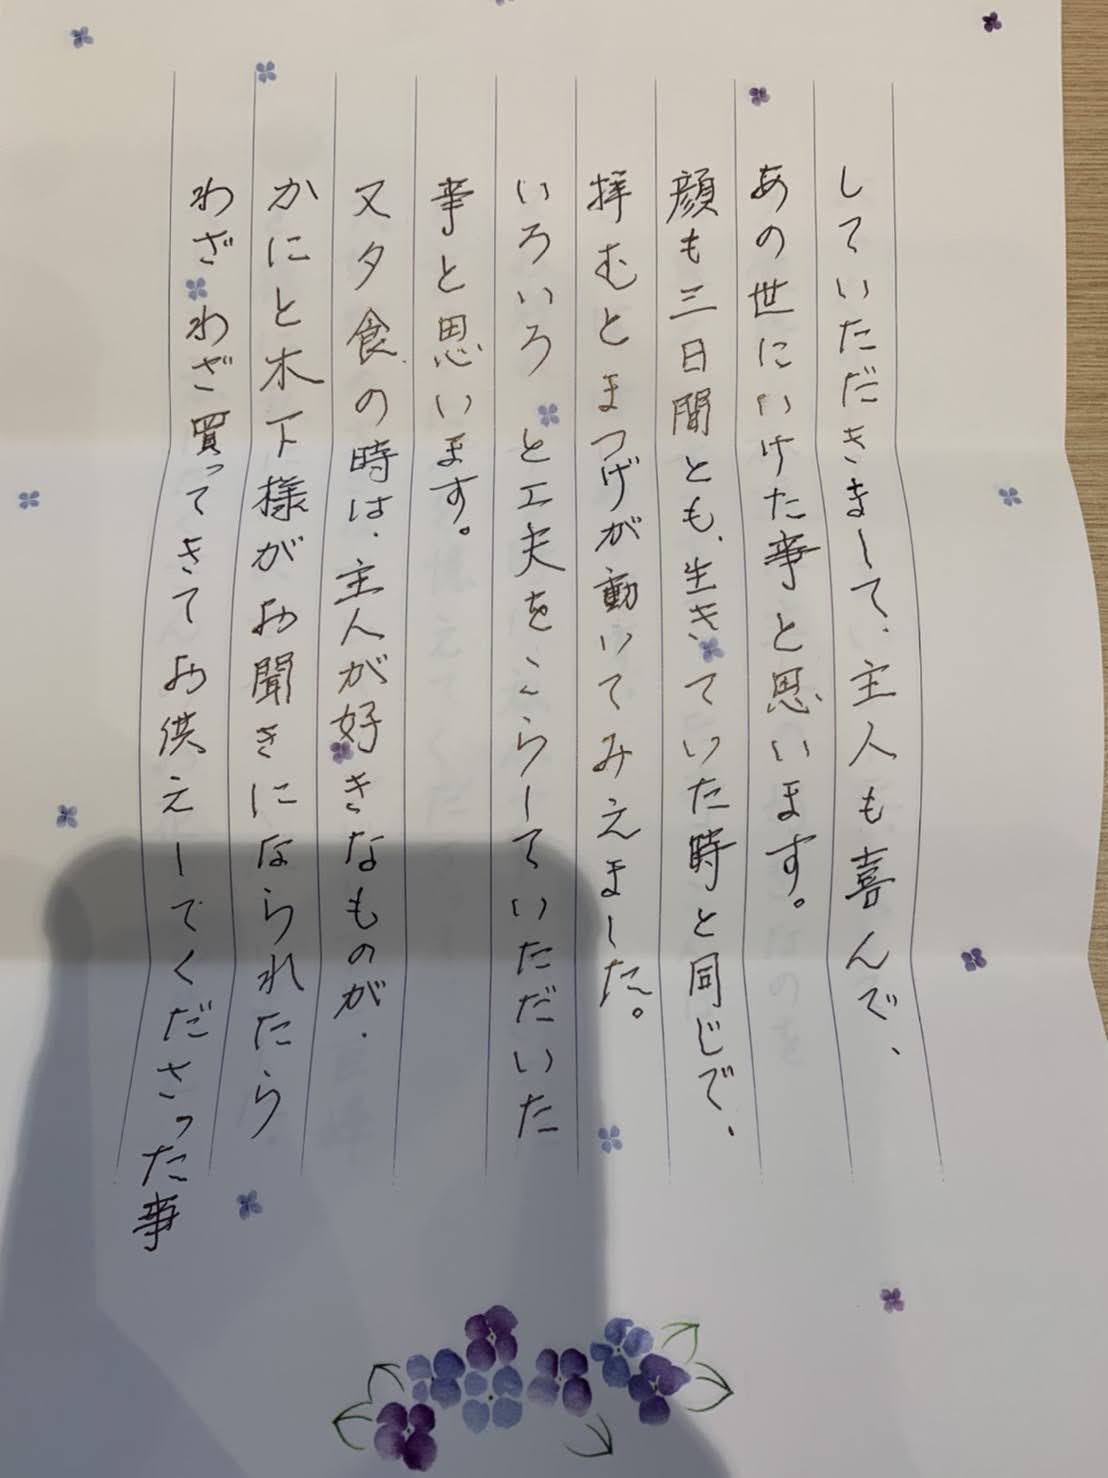 していただきまして、主人も喜んで、
あの世にいけた事と思います。
顔も三日間とも、生きていた時と同じで、
拝むとまつげが動いてみえました。
いろいろと工夫をこらしていただいた
事と思います。
又夕食の時は、主人が好きなものが、
かにと木下様がお聞きになられたら
わざわざ買ってきてお供えしてくださった事